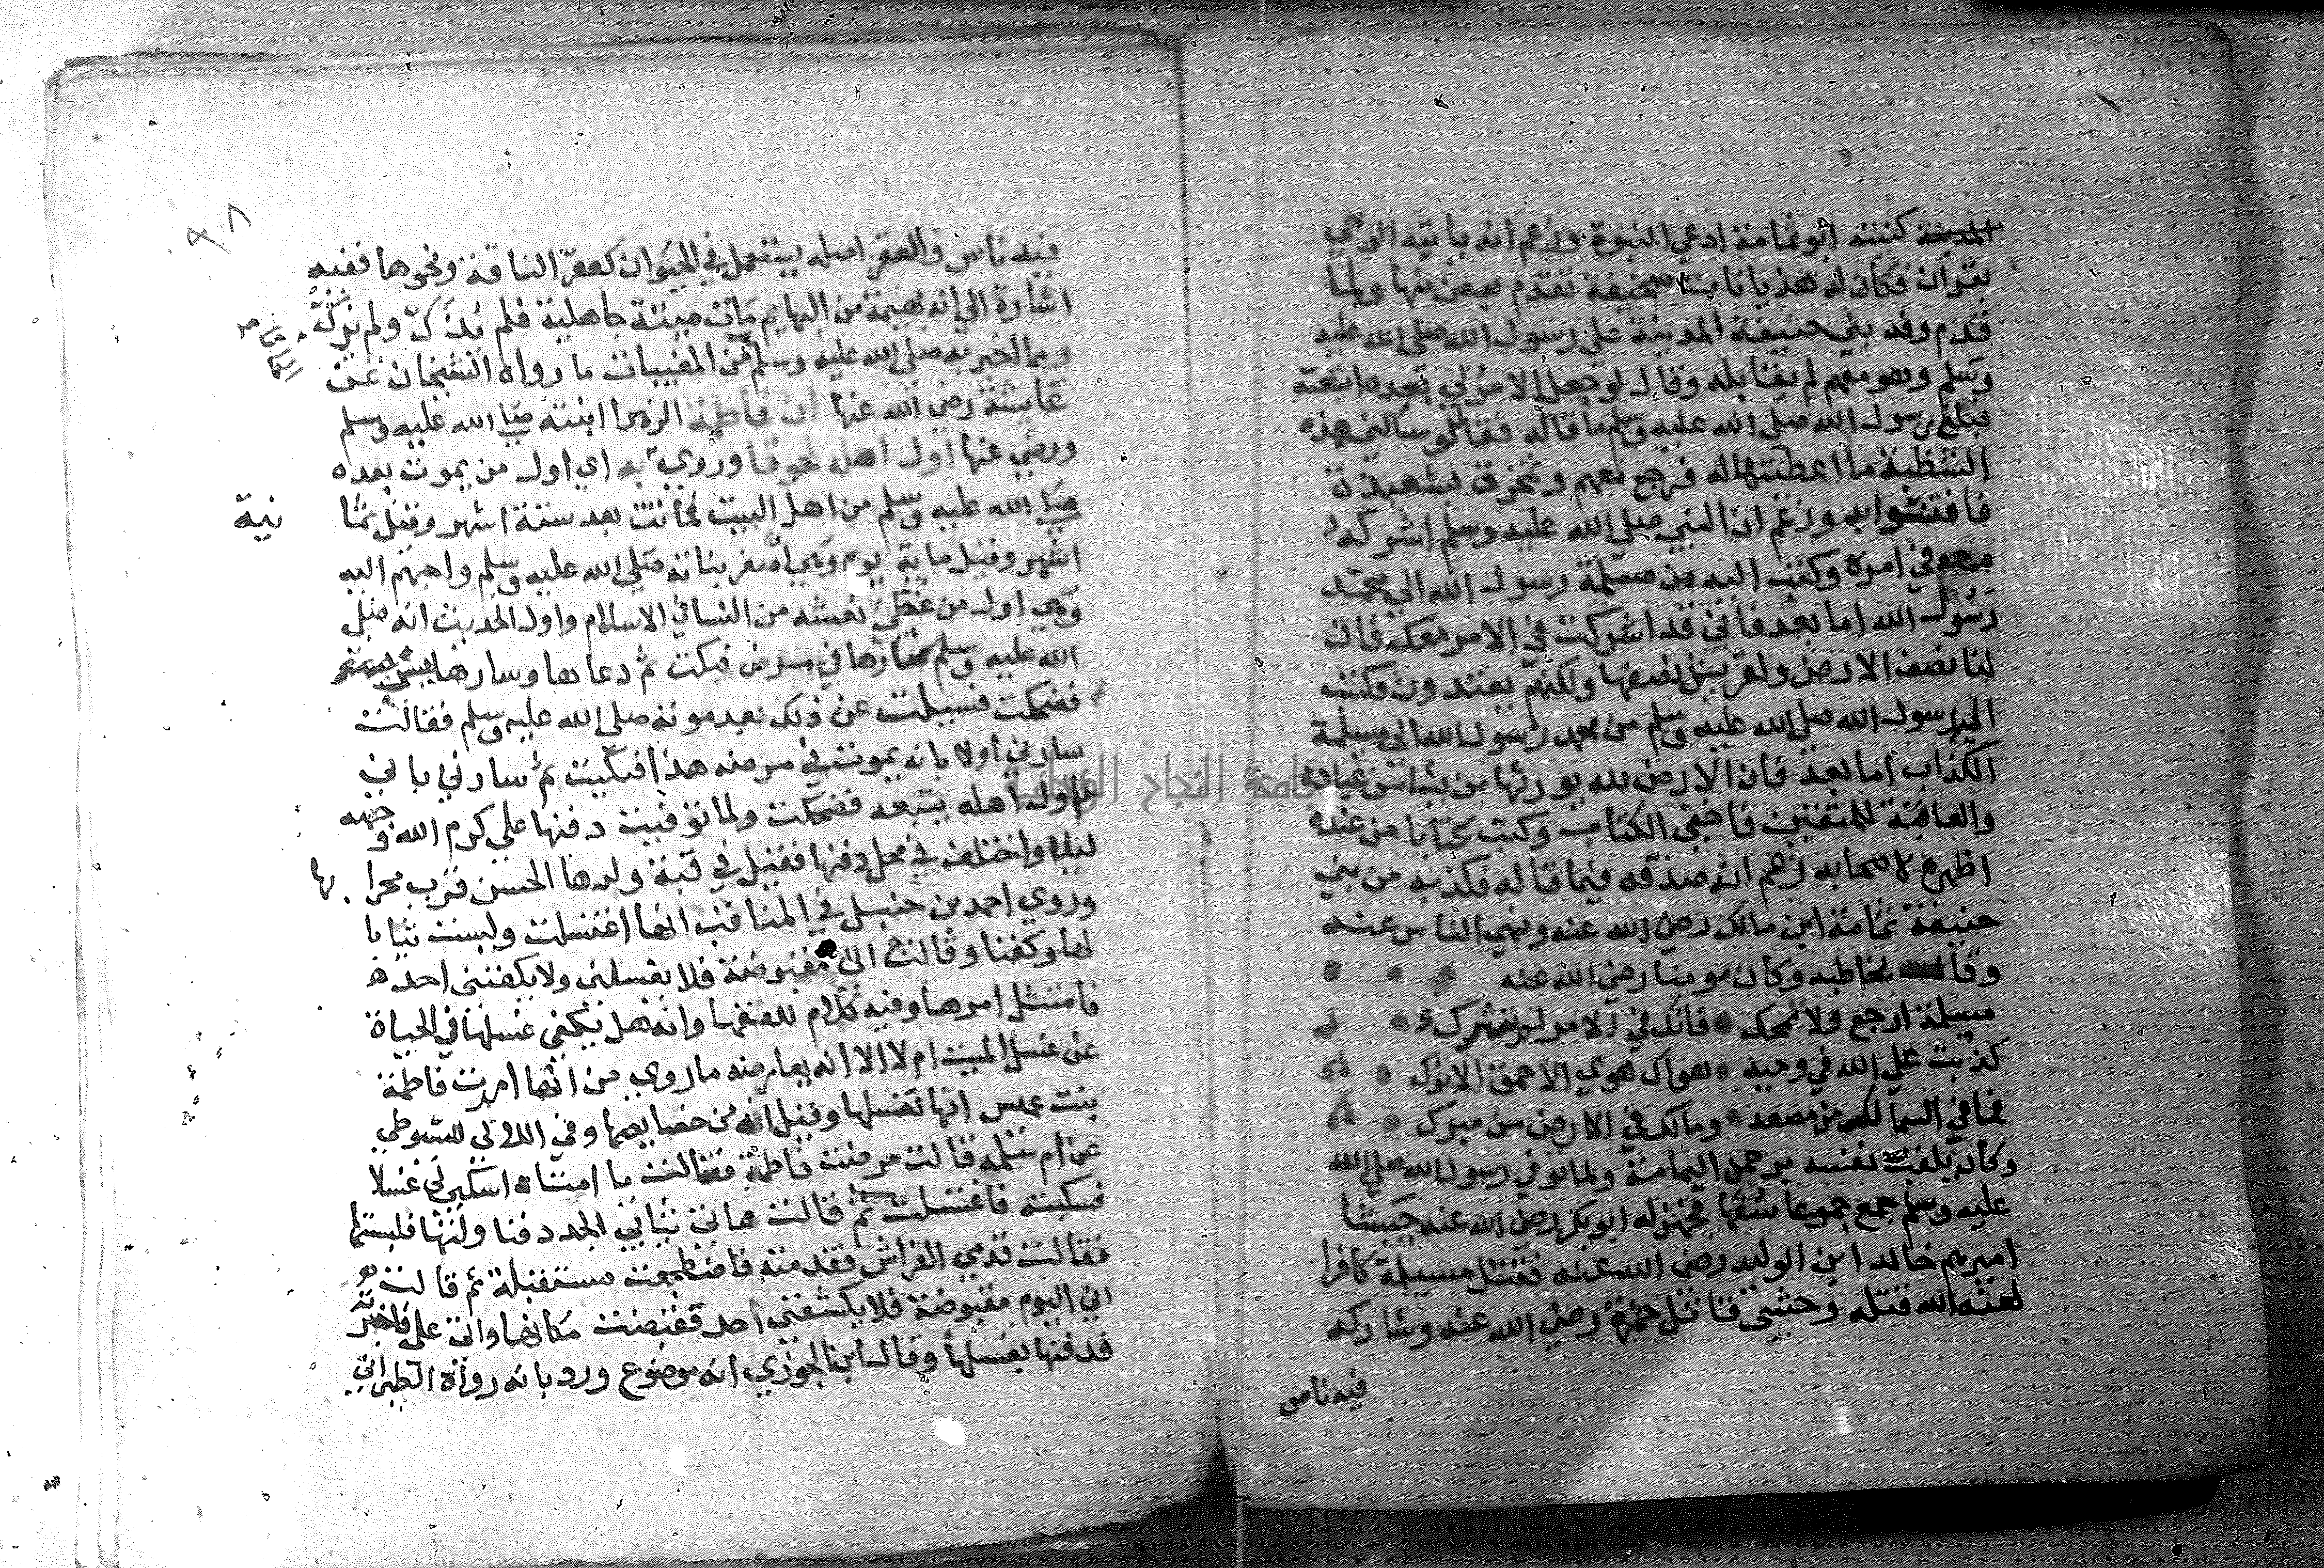 كنيته ابو ثمامة ادعي النبوة وزعم انه ياتيه الوحي
بقران فكان له هذيانات سخيفة تقدم بعض منها ولما
قدم وفد بني حنيفة المدينة علي رسول الله صلي الله عليه
وسلم وهو معهم لم يقابله وقال لو جعل الامر لي بعده اتبعته
فبلغ رسول الله صلي الله عليه وسلم ما قاله فقال لو سالني هذه
الشظية ما اعطيتها له فرجع معهم وتخرق بشعبذة
فافتتنوا به وزعم ان النبي صلي الله عليه وسلم اشركه
معه في امره وكتب اليه من مسيلمة رسول الله الي محمد
رسول الله اما بعد فاني قد اشركت في الامر معك فان
لنا نصف الارض ولقريش نصفها ولكنهم يعتدون فكتب
اليه رسول الله صلي الله عليه وسلم من محمد رسول الله الي مسيلمة
الكذاب اما بعد فان الارض لله يورثها من يشا من عباده
والعاقبة للمتقين فاخفي الكتاب وكتب كتابا من عنده
اظهره لاصحابه زعم انه صدقه فيما قاله فكذبه من بني
حنيفة ثمامة ابن مالك رضي الله عنه ونهي الناس عنه
وقال يخاطبه وكان مومنا رضي الله عنه
مسيلمة ارجع ولا تمحك فانك في الامر لم تشرك
كذبت علي الله في وحيه هواك هوي الاحمق الانوك
فما في السما لك من مصعد ومالك في الارض من مبرك
وكان يلقب نفسه برحمن اليمامة ولما توفي رسول الله صلي الله
عليه وسلم جمع جموعا سفها فجهز له ابو بكر رضي الله عنه جيشا
اميرهم خالد ابن الوليد رضي الله عنه فقتل مسيلمة كافرا
لعنه الله قتله وحشي قاتل حمزة رضي الله عنه وشاركه
فيه ناس
٩٨
فيه ناس والعقر اصله يستعمل في الحيوان كعقر الناقة ونحوها ففيه
اشارة الي انه بهيمة من البهايم مات ميتة جاهلية فلم يذك ولم يزك
ومما اخبر به صلي الله عليه وسلم من المغيبات ما رواه الشيخان عن
عايشة رضي الله عنها ان فاطمة الزهرا ابنته صلي الله عليه وسلم
ورضي عنها اول اهله لحوقا وروي به اي اول من يموت بعده
صلي الله عليه وسلم من اهل البيت فماتت بعد ستة اشهر وقيل ثما
نية
اشهر وقيل ماية يوم وهي اصغر بناته صلي الله عليه وسلم واحبهم اليه
وهي اول من غطي نعشه من النسا في الاسلام واول الحديث انه صلي
الله عليه وسلم سارها في مرض فبكت ثم دعاها وسارها بشي
فضحكت فسيلت عن ذلك بعد موته صلي الله عليه وسلم فقالت
سارني اولا بانه يموت في مرضه هذا فبكيت ثم سارني باني
اول اهله يتبعه فضحكت ولما توفيت دفنها علي كرم الله وجهه
ليلا واختلف في محل دفنها فقيل في قبة ولدها الحسن قرب محرا
بها
وروي احمد بن حنبل في المناقب انها اغتسلت ولبست ثيابا
لها وكفنا وقالت اني مقبوضة فلا يغسلني ولا يكفنني احد
فامتثل امرها وفيه كلام للفقها وانه هل يكفي غسلها في الحياة
عن غسل الميت ام لا الا انه يعارضه ما روي من انها امرت فاطمة
بنت عميس انها تغسلها وقيل انه من خصايصها وفي اللالي للسيوطي
عن ام سلمة قالت مرضت فاطمة فقالت يا امتاه اسكبي لي غسلا
فسكبته فاغتسلت ثم قالت هاتي ثيابي الجدد فناولتها فلبستها
فقالت قدمي الفراش فقدمته فاضطجعت مستقبلة ثم قالت
اني اليوم مقبوضة فلا يكشفني احد فقبضت مكانها واتي علي فاخبرته
فدفنها بغسلها وقال ابن الجوزي انه موضوع ورد بانه رواه الطبراني
جامعة النجاح الوطنية